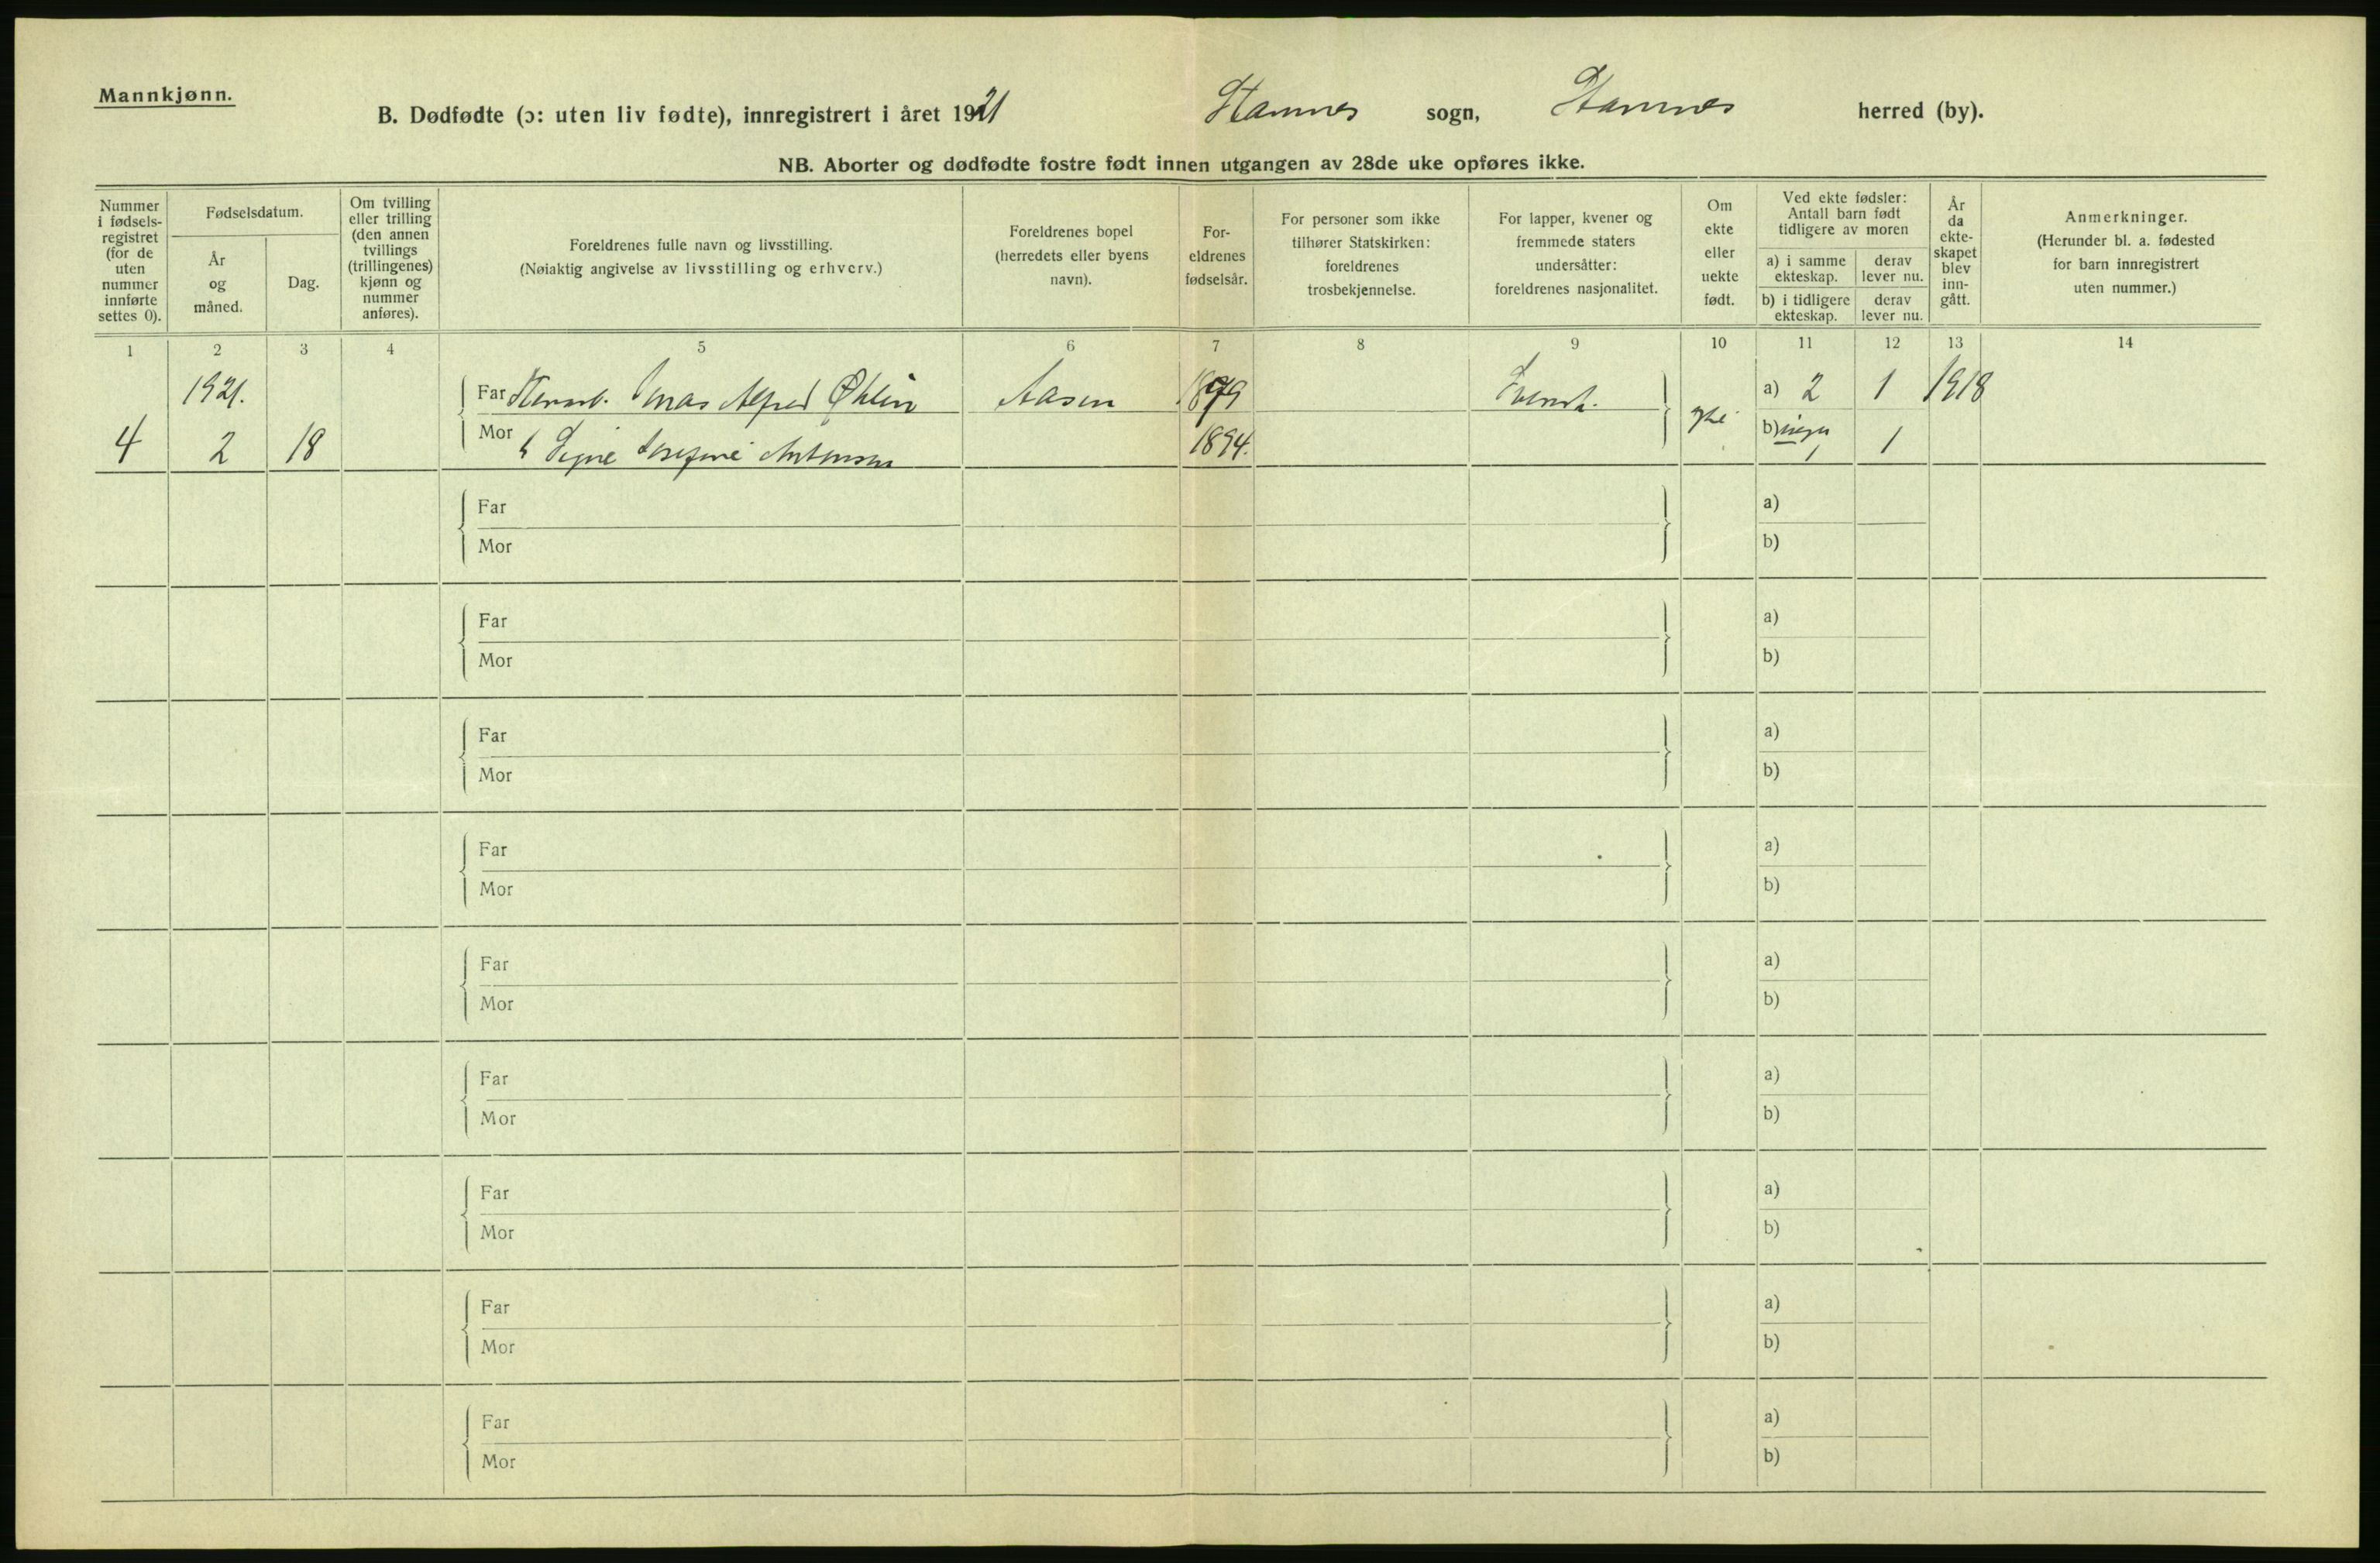 Mannkjønn.
B. Dødfødte (ɔ: uten liv fødte), innregistrert i året 1921 Stamnes sogn, Stamnes herred (by).
NB. Aborter og dødfødte fostre født innen utgangen av 28de uke opføres ikke.
Nummer
i fødsels-
registret
(for de
uten
nummer
innførte
settes 0).
Fødselsdatum.
År
og
måned.
Dag.
Om tvilling
eller trilling
(den annen
tvillings
(trillingenes)
kjønn og
nummer
anføres).
Foreldrenes fulle navn og livsstilling.
(Nøiaktig angivelse av livsstilling og erhverv.)
Foreldrenes bopel
(herredets eller byens
navn).
For-
eldrenes
fødselsår.
For personer som ikke
tilhører Statskirken:
foreldrenes
trosbekjennelse.
For lapper, kvener og
fremmede staters
undersåtter:
foreldrenes nasjonalitet.
Om
ekte
eller
uekte
født.
Ved ekte fødsler:
Antall barn født
tidligere av moren
a) i samme
ekteskap.
derav
lever nu.
b) i tidligere
ekteskap.
derav
lever nu.
År
da
ekte-
skapet
blev
inn-
gått.
Anmerkninger.
(Herunder bl. a. fødested
for barn innregistrert
uten nummer.)
1 2 3 4 5 6 7 8 9 10 11 12 13 14
1921. Far Jonas Alfred Øhlin Aasen 1879 Svensk. a) 2 1 1918
4 2 18 Mor Signe Josefine Antonsen 1894. ekte b) 1 1
Far a)
Mor b)
Far a)
Mor b)
Far a)
Mor b)
Far a)
Mor b)
Far a)
Mor b)
Far a)
Mor b)
Far a)
Mor b)
Far a)
Mor b)
Far a)
Mor b)